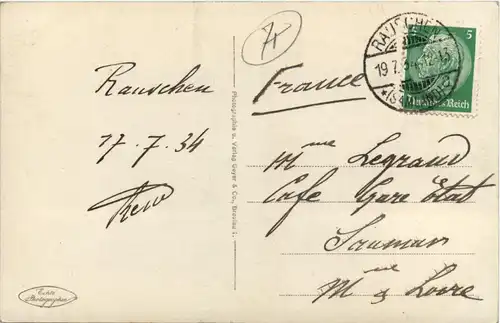 Rauschen
17.7.34
France
RAUSCHEN
19.7.34
5
Deutsches Reich
Mme Legrand
Cafe Gare Etat
Saumur
Mne & Loire
Photographie u. Verlag Geyer & Co., Breslau I.
Echte
Photographie